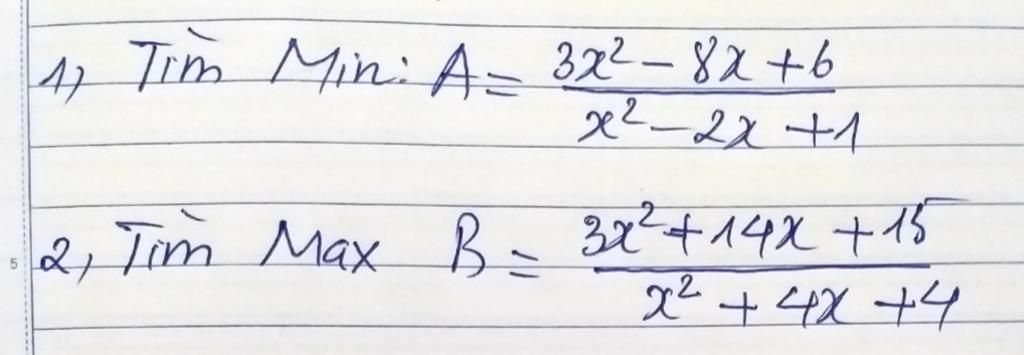 1, Tìm Min: A = \frac{3x² - 8x + 6}{x² - 2x + 1}
2, Tìm Max B = \frac{3x² + 14x + 15}{x² + 4x + 4}
5